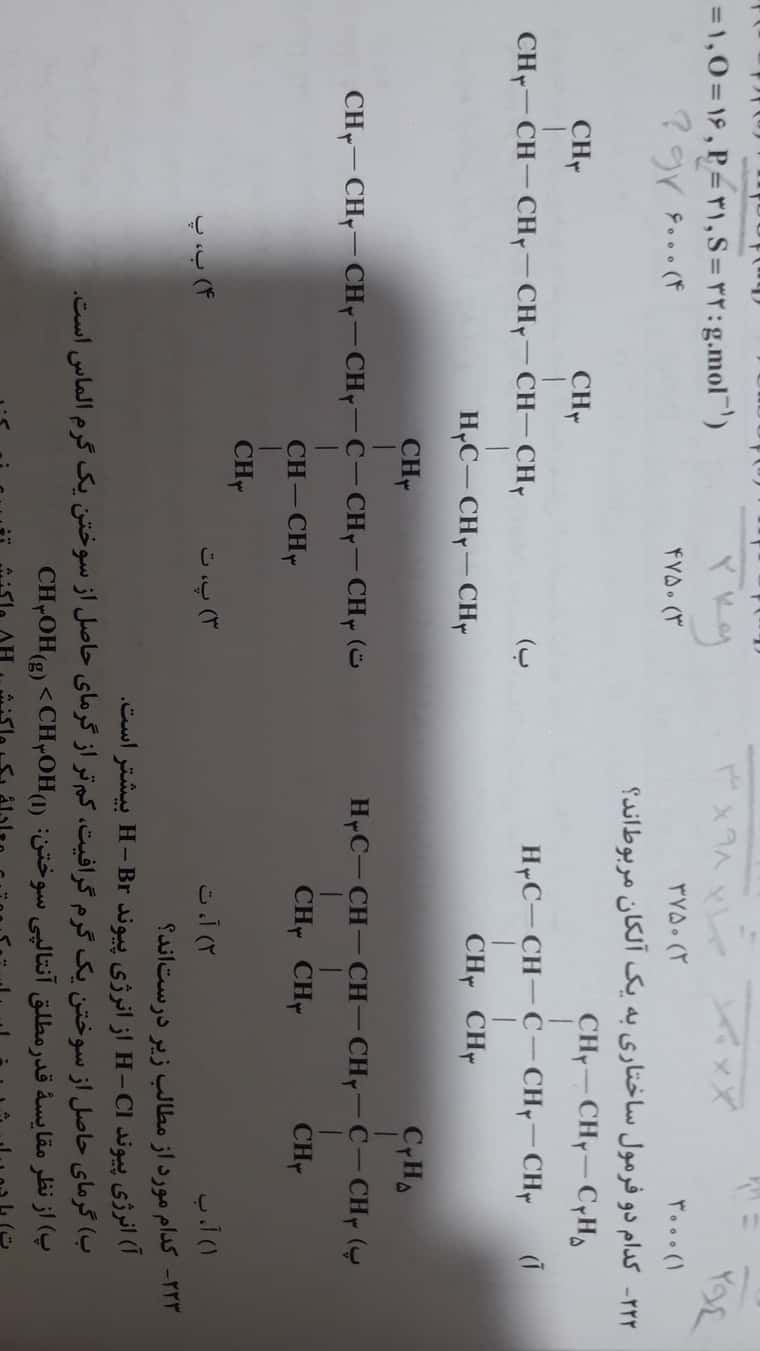 = ۱, O = ۱۶, P = ۳۱, S = ۳۲ : g.mol⁻¹)
۱) ۳۰۰۰ ۲) ۳۷۵۰ ۳) ۴۷۵۰ ۴) ۶۰۰۰
۲۲۲- کدام دو فرمول ساختاری به یک آلکان مربوط‌اند؟
CH₂ — CH₂ — C₂H₵
H₃C — CH — C — CH₂ — CH₃ (آ
CH₃ CH₃
CH₃ CH₃
CH₃ — CH — CH₂ — CH₂ — CH — CH₂ (ب
H₂C — CH₂ — CH₃
C₂H₅
H₃C — CH — CH — CH₂ — C — CH₃ (پ
CH₃ CH₃ CH₃
CH₃
CH₃ — CH₂ — CH₂ — CH₂ — C — CH₂ — CH₃ (ت
CH — CH₃
CH₃
۱) آ، ب ۲) آ، ت ۳) پ، ت ۴) ب، پ
۲۲۳- کدام مورد از مطالب زیر درست‌اند؟
آ) انرژی پیوند H – Cl از انرژی پیوند H – Br بیشتر است.
ب) گرمای حاصل از سوختن یک گرم گرافیت، کم‌تر از گرمای حاصل از سوختن یک گرم الماس است.
پ) از نظر مقایسهٔ قدرمطلق آنتالپی سوختن: CH₃OH(g) < CH₃OH(l)